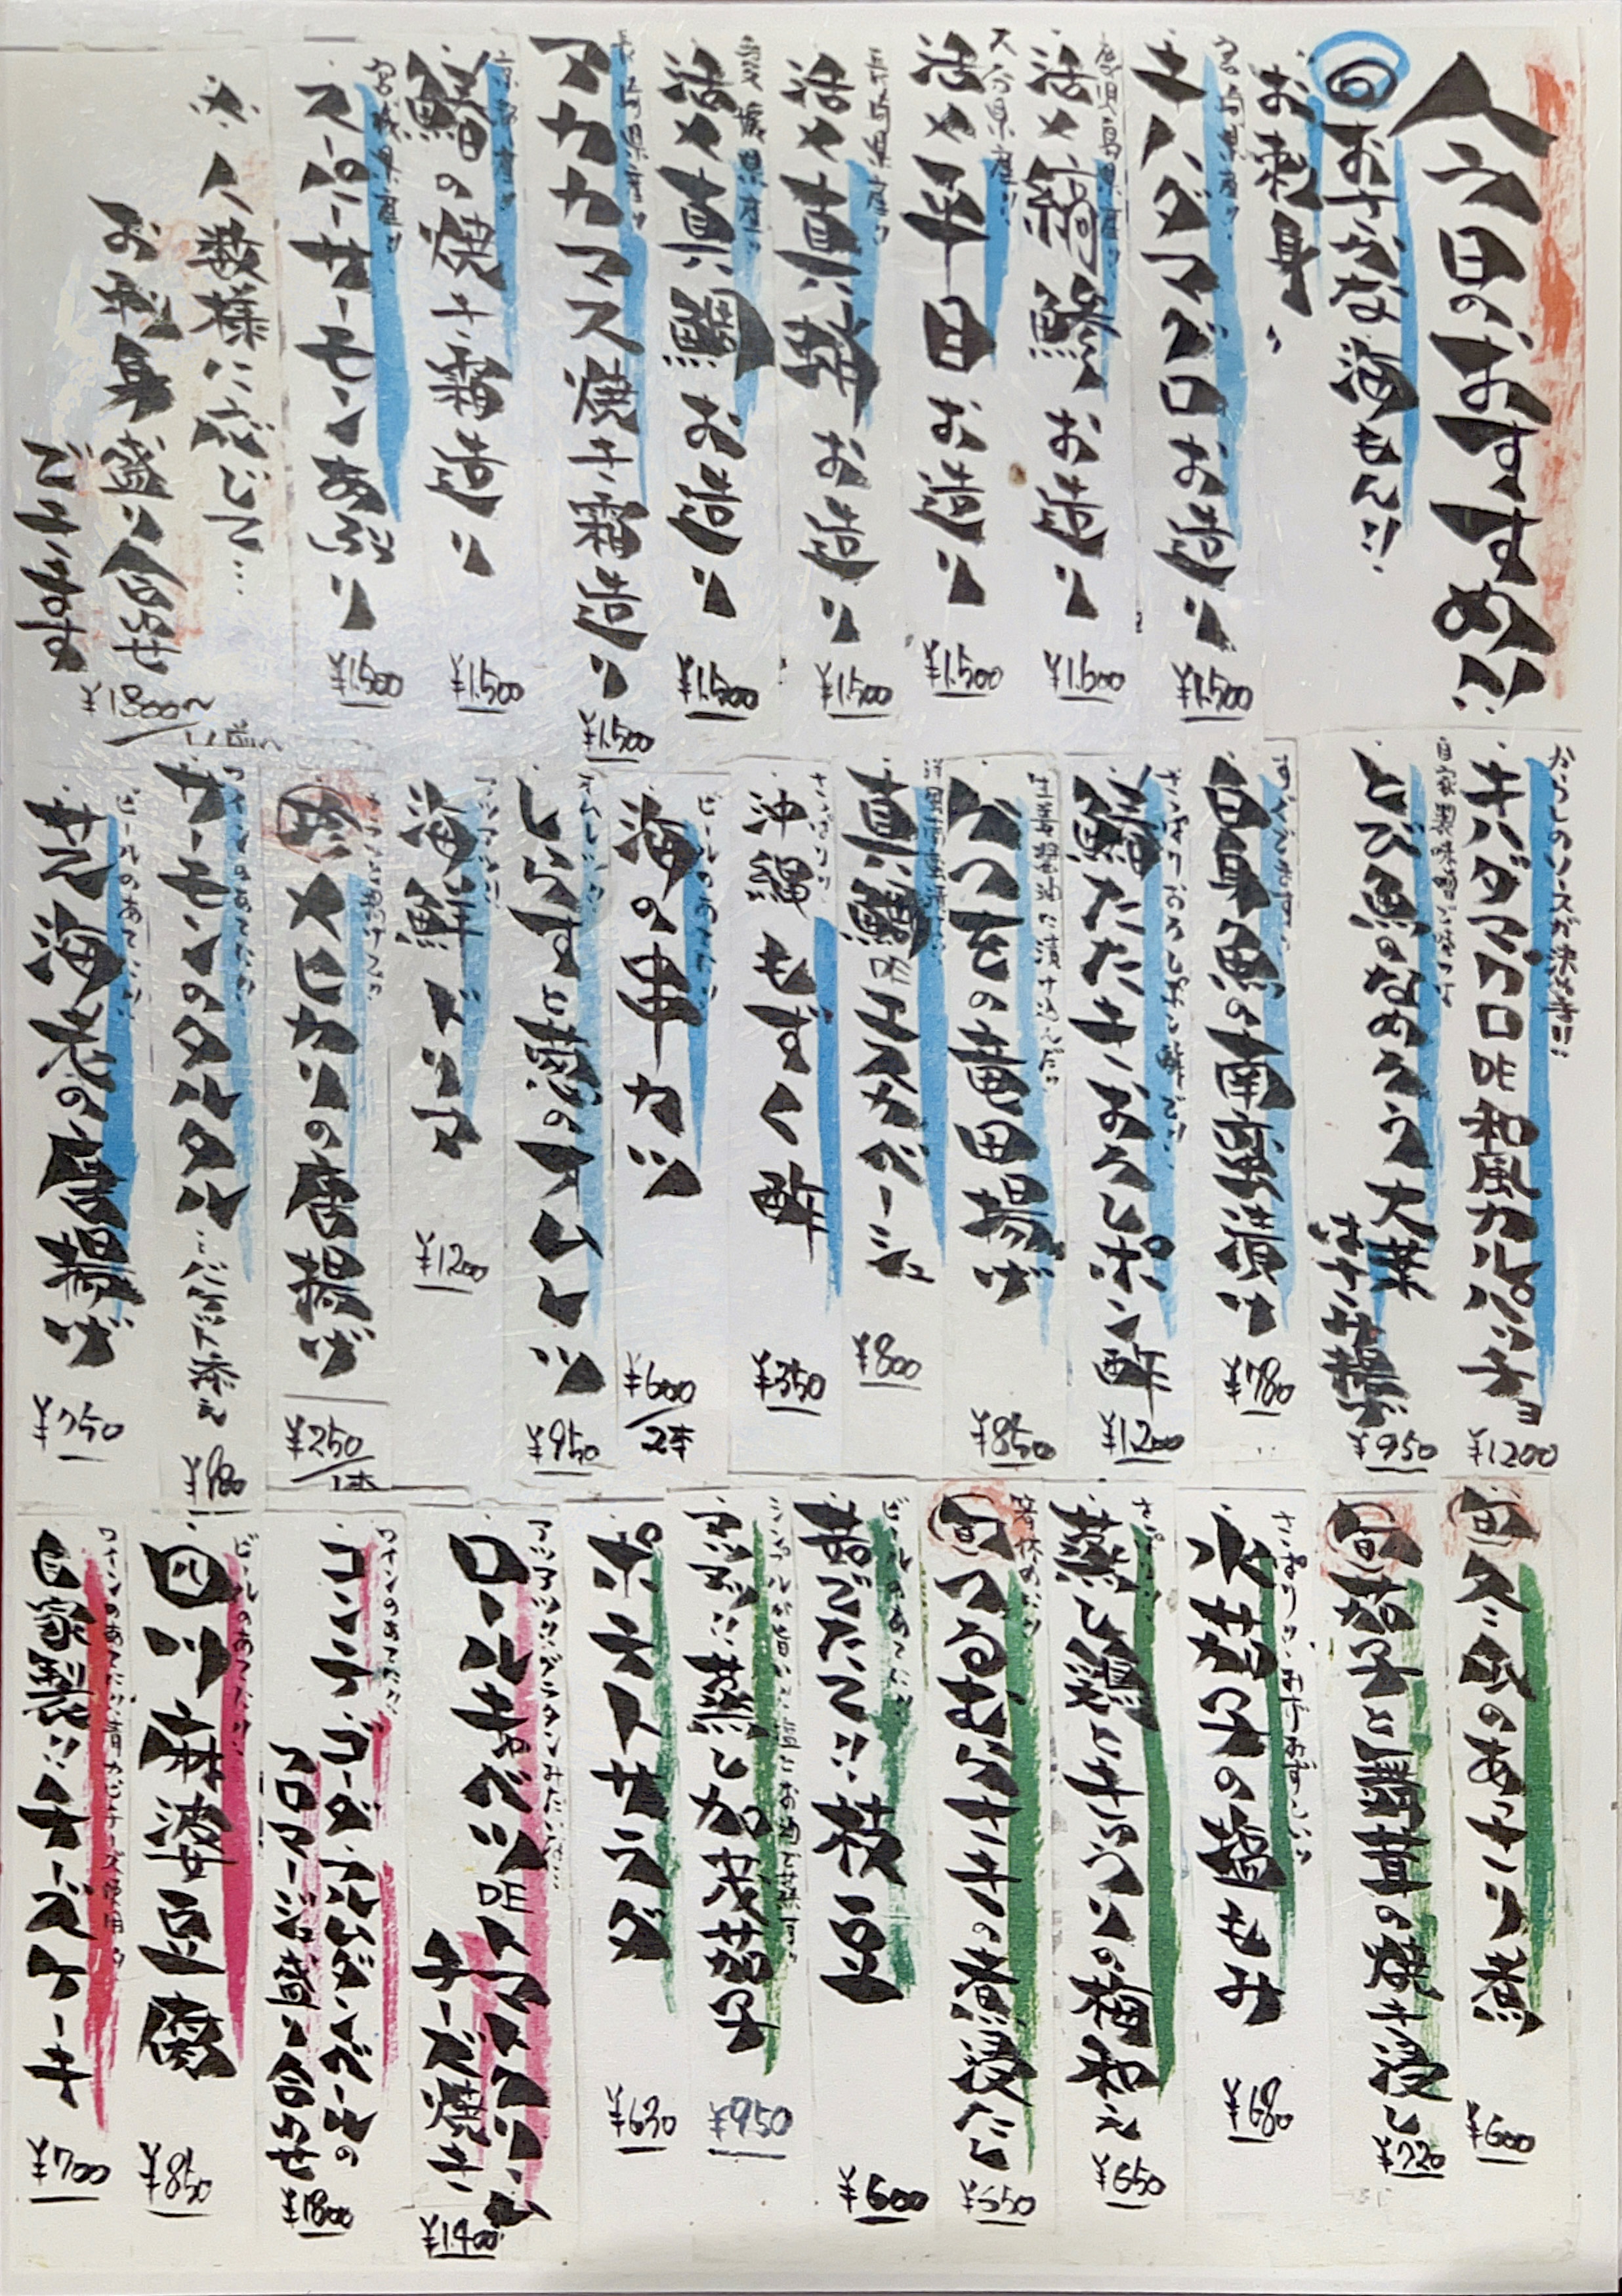 今日のおすすめ!!
旬 おさかな海もん!!
お刺身
宮崎県産!!
キハダマグロお造り
¥1.500
鹿児島県産!!
活〆縞鯵お造り
¥1.600
大分県産!!
活〆平目お造り
¥1.500
長崎県産!!
活〆真鯖お造り
¥1.500
愛媛県産!!
活〆真鯛お造り
¥1.500
長崎県産!!
アカカマス焼き霜造り
¥1.500
鰆の焼き霜造り
¥1.500
宮城県産!!
スーパーサーモンあぶり
¥1.500
※人数様に応じて…
お刺身盛り合せ
できます
¥1800〜
からしのソースが決め手!!
キハダマグロ 和風カルパッチョ
¥1200
とび魚のなめろう大葉
はさみ揚げ
¥950
白身魚の南蛮漬け
¥780
鰆たたきおろしポン酢
¥1200
生姜醤油に漬け込んだ!!
かつをの竜田揚げ
¥850
真鯛のエスカベーシュ
¥800
さっぱり!!
沖縄もずく酢
¥350
ビールのあてに!!
海の串カツ
¥600/2本
しらすと葱のオムレツ
¥950
アツアツ!!
海鮮ドリア
¥1200
珍 メヒカリの唐揚げ
¥250/1本
ワインのあてに!!
サーモンのタルタル…バケット添え
¥980
ビールのあてに!!
芝海老の唐揚げ
¥750
旬 冬瓜のあっさり煮
¥600
旬 茄子と万願寺の揚げ浸し
¥720
水茄子の塩もみ
¥680
さっぱり!!
蒸し鶏ときゅうりの梅和え
¥650
箸休めに!!
旬 つるむらさきの煮浸し
¥550
ビールのあてに!!
茹でたて!!枝豆
¥600
アツアツ!!蒸し加茂茄子
¥950
ポテトサラダ
¥630
ロールキャベツのトマトクリーム
チーズ焼き
¥1400
ワインのあてに!!
コンテ、ゴーダ、カマンベールの
フロマージュ盛り合せ
¥1800
ビールのあてに!!
四川麻婆豆腐
¥850
ワインのあてに!!青カビチーズ使用
自家製!!チーズケーキ
¥700